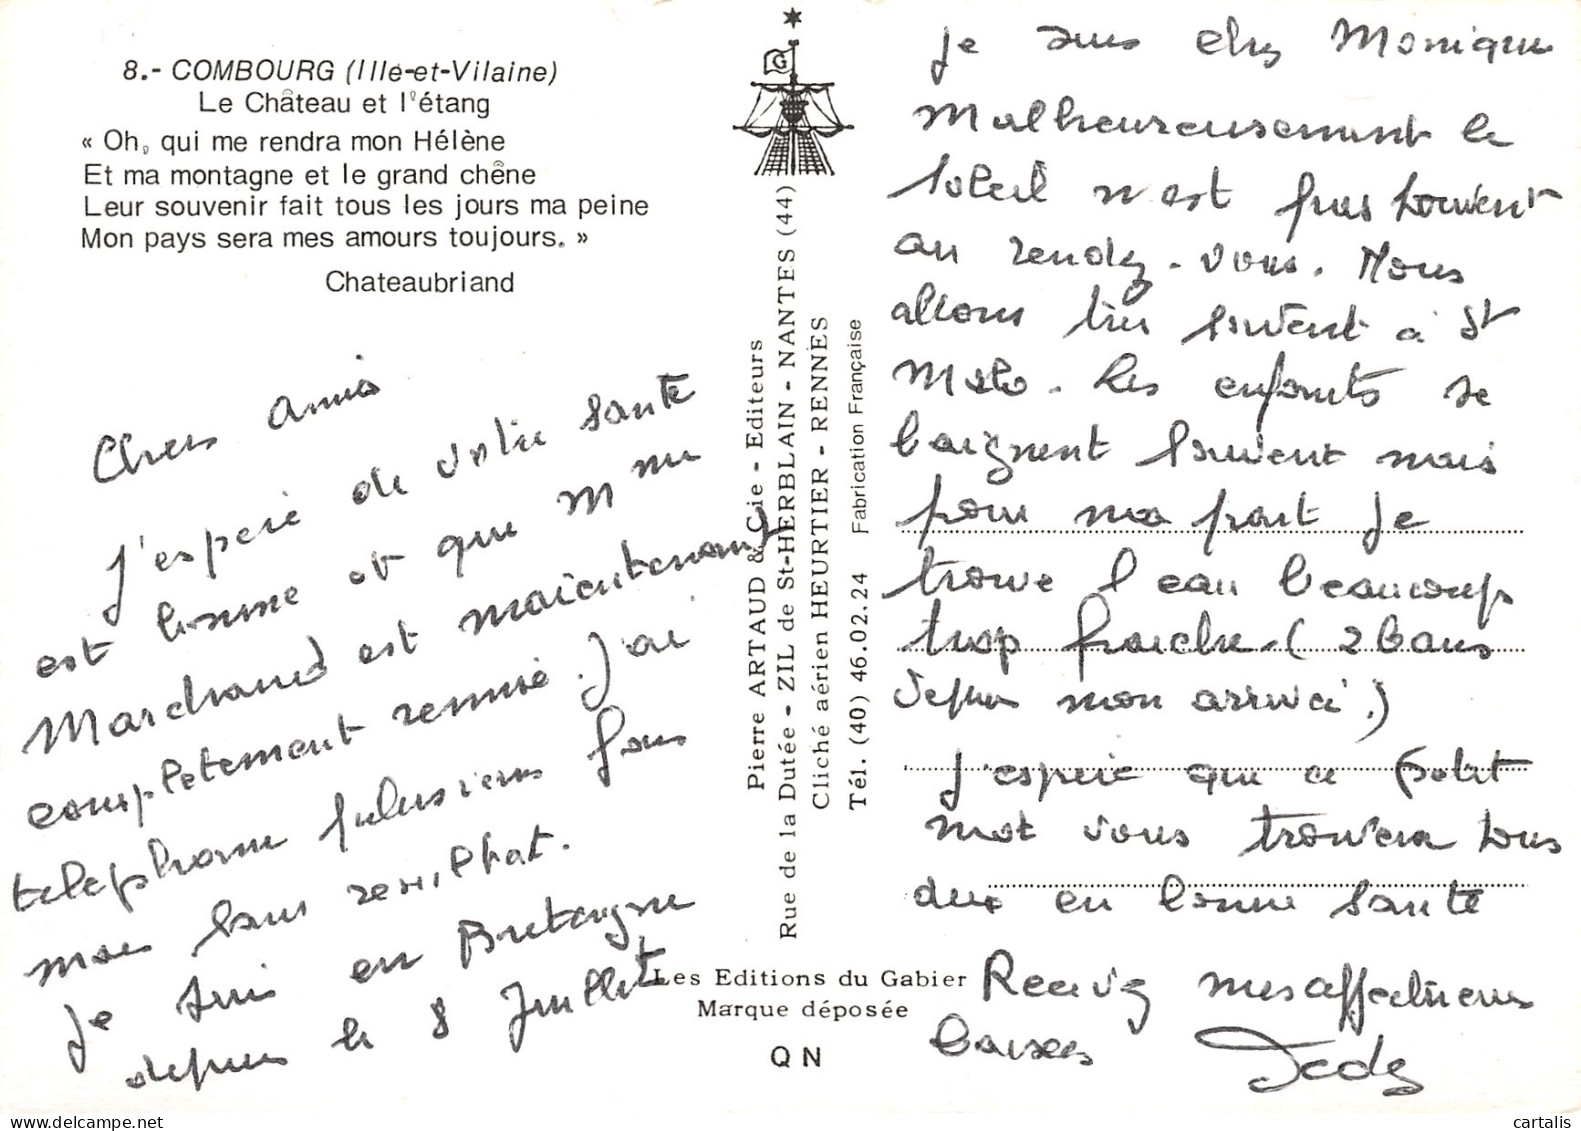 8.- COMBOURG (Ille-et-Vilaine)
Le Château et l'étang
« Oh, qui me rendra mon Hélène
Et ma montagne et le grand chêne
Leur souvenir fait tous les jours ma peine
Mon pays sera mes amours toujours. »
Chateaubriand
Chers amis
J'espère que votre santé
est bonne et que Mme
Marchand est maintenant
complètement remise. J'ai
téléphoné plusieurs fois
mais sans résultat.
Je suis en Bretagne
depuis le 8 Juillet
G
Pierre ARTAUD & Cie - Editeurs
Rue de la Dutée - ZIL de St-HERBLAIN - NANTES (44)
Cliché aérien HEURTIER - RENNES
Tél. (40) 46.02.24 Fabrication Française
Les Editions du Gabier
Marque déposée
QN
je suis chez Monique
Malheureusement le
soleil n'est pas souvent
au rendez-vous. Nous
allons très souvent à St
Malo. Les enfants se
baignent souvent mais
pour ma part je
trouve l'eau beaucoup
trop fraiche. (2 bains
depuis mon arrivée.)
J'espère que ce petit
mot vous trouvera tous
deux en bonne santé
Recevez mes affectueux
baisers
cartalis